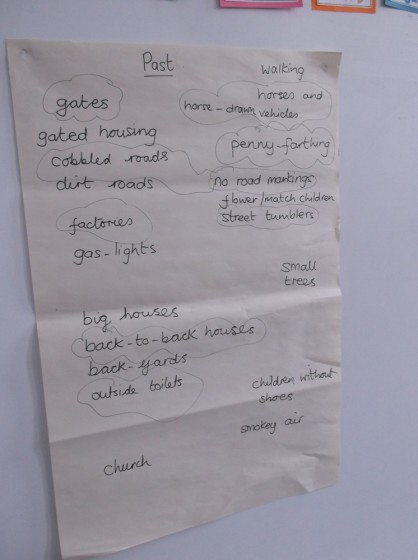 Past
gates
gated housing
cobbled roads
dirt roads
factories
gas-lights
big houses
back-to-back houses
back-yards
outside toilets
church
walking
horses and
horse-drawn vehicles
penny-farthing
no road markings
flower/match children
street tumblers
small
trees
children without
shoes
smokey air